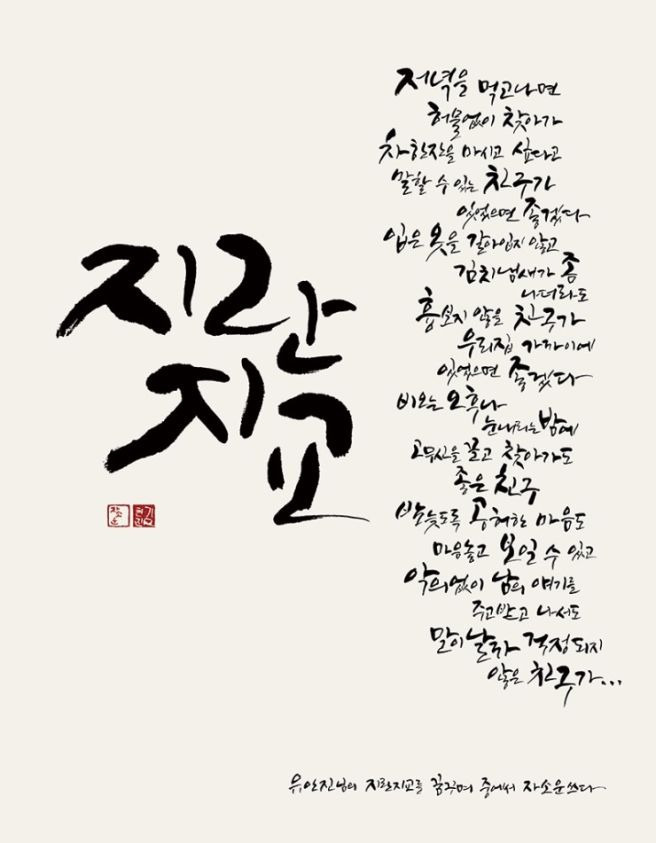 지란
지교
저녁을 먹고나면
허물없이 찾아가
차한잔을 마시고 싶다고
말할 수 있는 친구가
있었으면 좋겠다
입은 옷을 갈아입지 않고
김치냄새가 좀
나더라도
흉보지 않을 친구가
우리집 가까이에
있었으면 좋겠다
비오는 오후나
눈내리는 밤에
고무신을 끌고 찾아가도
좋은 친구
밤늦도록 공허한 마음도
마음놓고 보일 수 있고
악의없이 남의 얘기를
주고받고 나서도
말이 날까 걱정되지
않은 친구가...
유안진님의 지란지교를 꿈꾸며 중에서 자소운쓰다